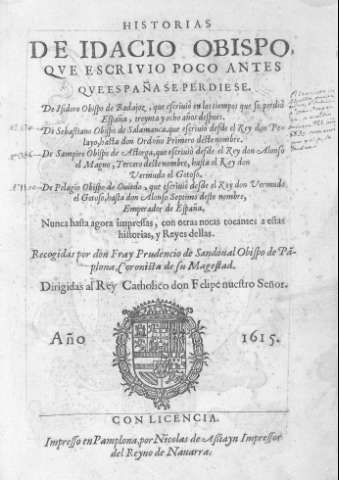 HISTORIAS
DE IDACIO OBISPO,
QVE ESCRIVIO POCO ANTES
QVE ESPAÑA SE PERDIESE.
De Isidoro Obispo de Badajoz, que escriuiò en los tiempos que se perdiò
España, treynta y ocho años despues.
De Sebastiano Obispo de Salamanca, que escriuiò desde el Rey don Pe-
layo, hasta don Ordoño Primero deste nombre.
De Sampiro Obispo de Astorga, que escriuiò desde el Rey don Alonso
el Magno, Tercero deste nombre, hasta el Rey don
Vermudo el Gotoso.
De Pelagio Obispo de Ouiedo, que escriuiò desde el Rey don Vermudo
el Gotoso, hasta don Alonso Septimo deste nombre,
Emperador de España.
Nunca hasta agora impressas, con otras notas tocantes a estas
historias, y Reyes dellas.
Recogidas por don Fray Prudencio de Sandoual Obispo de Pã-
plona, Coronista de su Magestad.
Dirigidas al Rey Catholico don Felipe nuestro Señor.
Año 1615.
CON LICENCIA.
Impresso en Pamplona, por Nicolas de Assiayn Impressor
del Reyno de Nauarra.